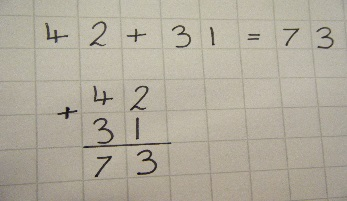 42 + 31 = 73
+ 42
31
73